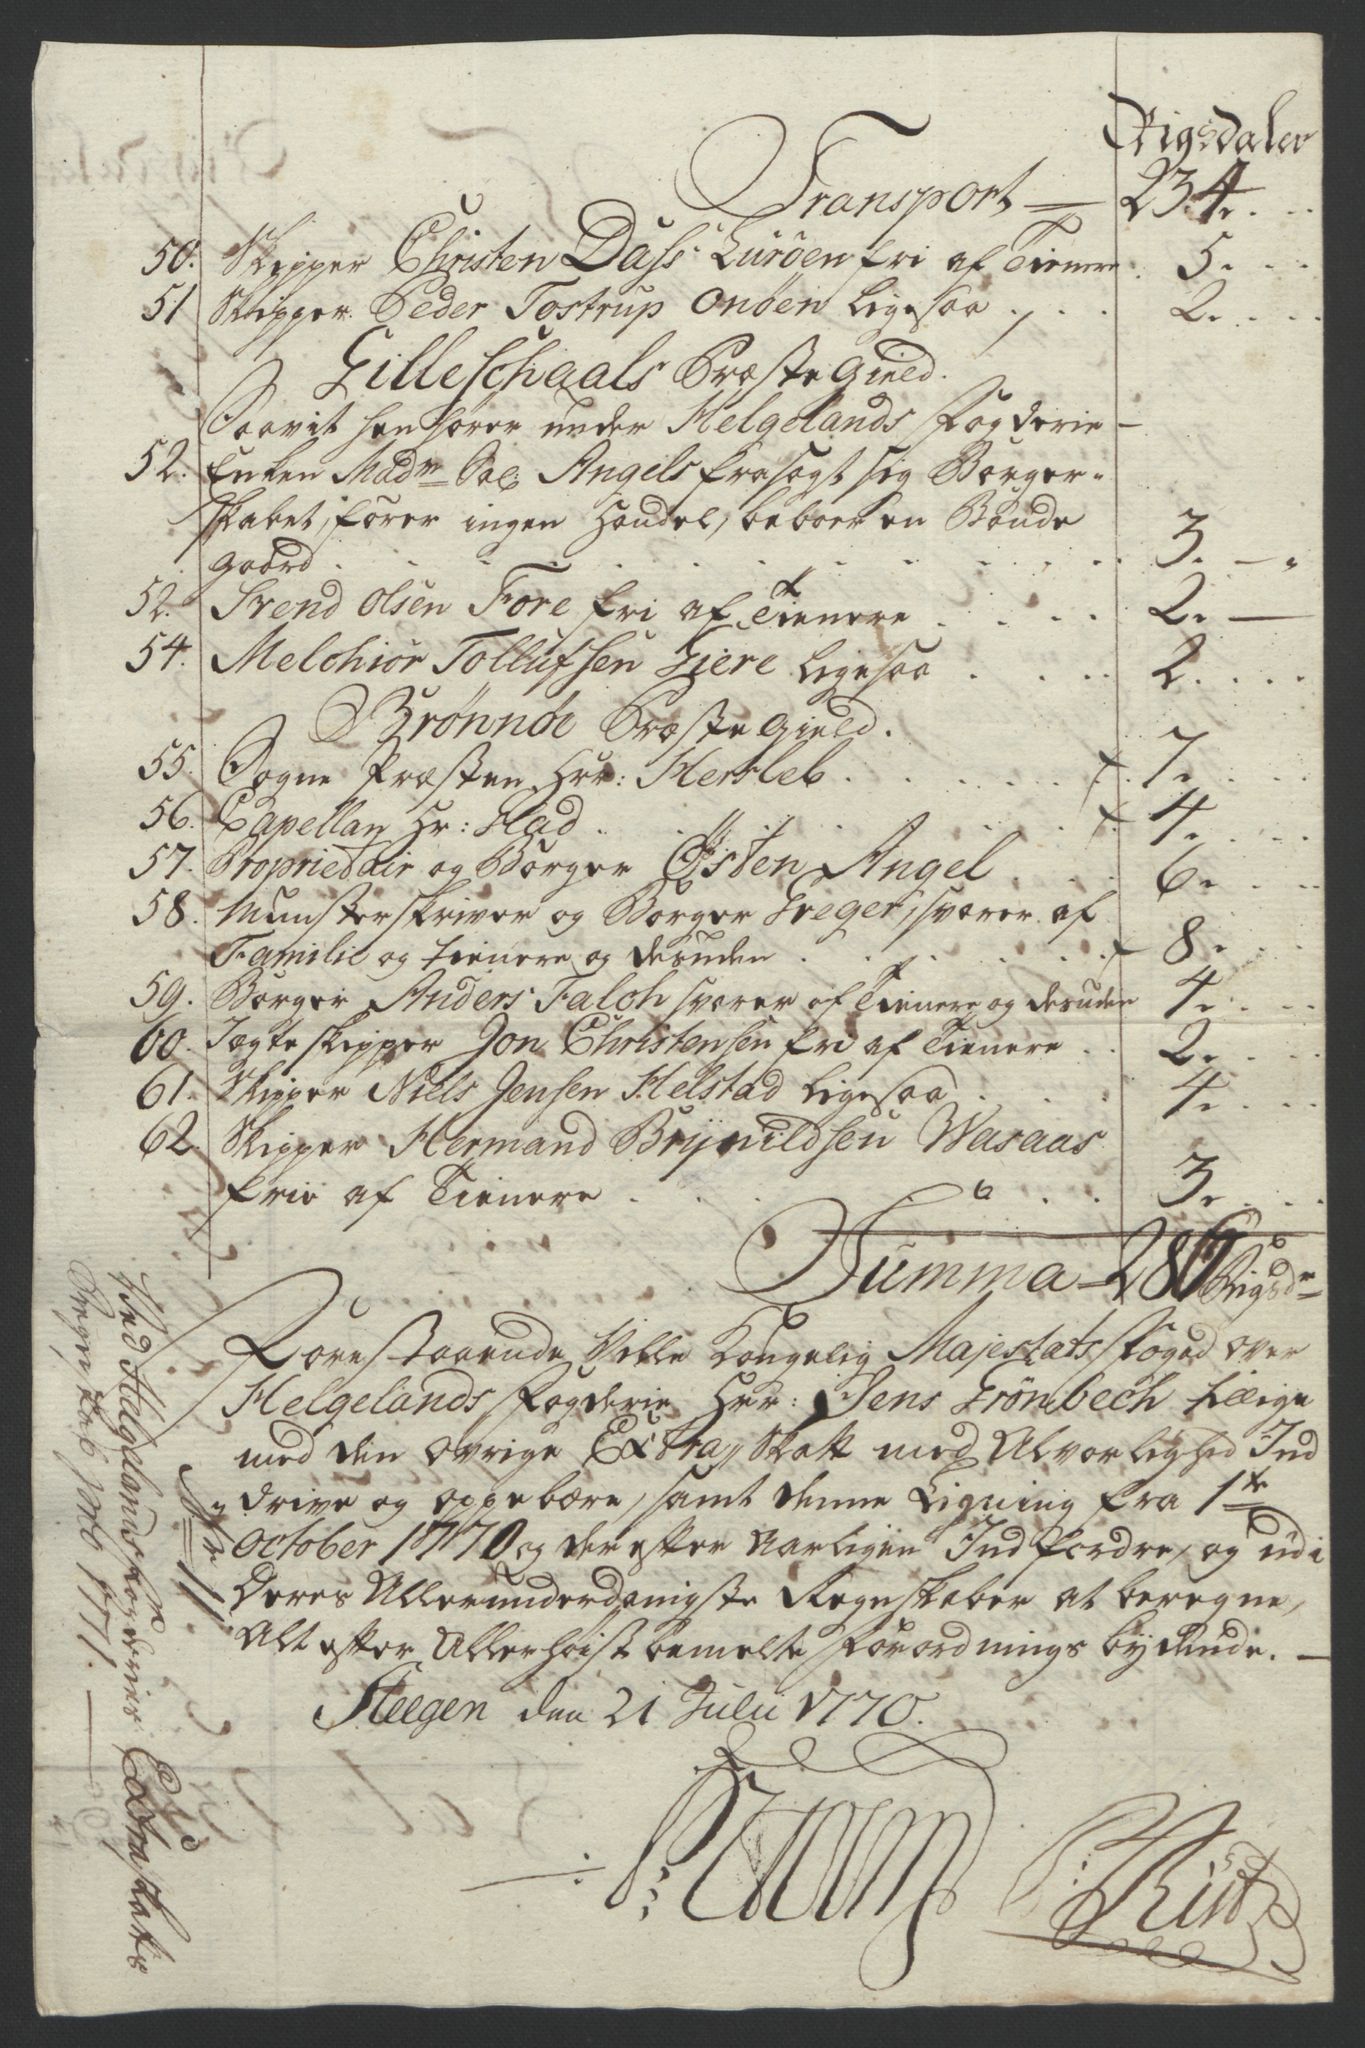 Rigsdaler
Transport — 234. . .
50. Skipper Christen Dass Lurøen fri af Tienere . 5. . .
51 Skipper Peder Tostrup Onøen ligesaa . , . . 2. . . .
Gilleschaals Præste Gield.
Saavit henhører under Helgelands Fogderie —
52. Enken Madm Sal. Angels frasagt sig Borger-
skabet, fører ingen Handel, beboer en Bonde
gaard . . . . . . . . . 3. —
52. Svend Olsen Fore fri af Tienere . . . . 2. —
54. Melchior Tollufsen Giere ligesaa . . . . 2. . . .
Brønnøe Præste Gield.
55. Sogne Præsten Hrr: Hersleb . . . . . 7. . . .
56. Capellan Hr: Flad . . . . . . 4. . . .
57. Proprietair og Borger Østen Angel . . . 6. . . .
58. Munsterskriver og Borger Greger, svarer af
Familie og tienere og desuden . . . . . 8. . .
59. Borger Anders Falch svarer af Tienere og desuden 4. . . .
60. Jægte skipper Jon Christensen fri af Tienere . . 2. . . .
61. Skipper Niels Jensen Helstad ligesaa . . . 4. . . .
62 Skipper Hermand Brynildsen Wasaas
frie af Tienere . . . . . 3. . . .
Summa — 286 Rigsdr
Forestaaende Ville Kongelig Majestats Foged over
Helgelands Fogderie Hrr: Jens Grönbech tillige
med den øvrige Extra Skatt med Alvorlighed Ind
drive og oppebære, samt denne Ligning fra 1te
October 1770 og derefter Aarligen Indfordre, og udi
Deres Allerunderdanigste Regnskaber at beregne,
Alt efter Allerhøist bemelte Forordnings bydende. —
Steegen den 21 Julii 1770.
Nr 11
Ved Helgelands Fogderies Extraskats
Regnskab pro 1771.